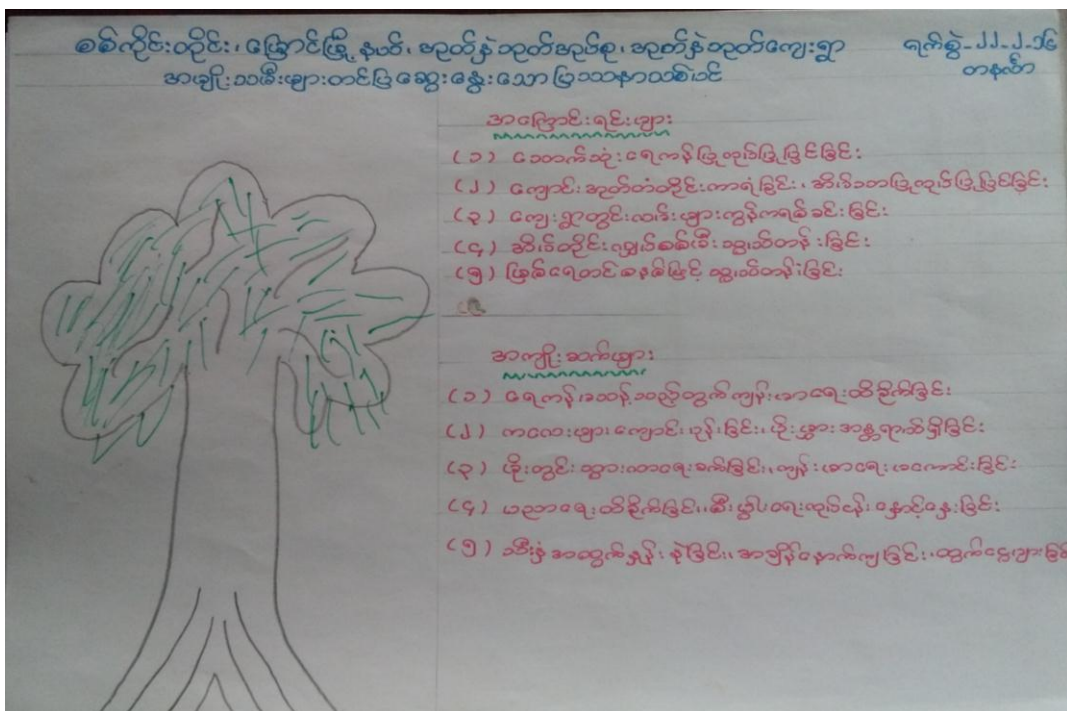 စစ်ကိုင်းတိုင်း၊ မြောင်မြို့နယ်၊ အုတ်နဲဘုတ်အုပ်စု၊ အုတ်နဲဘုတ်ကျေးရွာ
ရက်စွဲ-၂၂-၂-၁၆
အမျိုးသမီးများတင်ပြဆွေးနွေးသော ပြဿနာသစ်ပင်
တနင်္လာ
အကြောင်းရင်းများ
(၁) သောက်သုံးရေကန်ပြုလုပ်ပြုပြင်ခြင်း
(၂) ကျောင်းအုတ်တံတိုင်းကာရံခြင်း၊ အိမ်သာပြုလုပ်ပြုပြင်ခြင်း
(၃) ကျေးရွာတွင်းလမ်းများကွန်ကရစ်ခင်းခြင်း
(၄) အိမ်တိုင်းလျှပ်စစ်မီးသွယ်တန်းခြင်း
(၅) မြစ်ရေတင်စနစ်ဖြင့် သွယ်တန်းခြင်း
အကျိုးဆက်များ
(၁) ရေကန်မသန့်သည့်အတွက်ကျန်းမာရေးထိခိုက်ခြင်း
(၂) ကလေးများကျောင်းပုန်းခြင်း၊ ပိုးမွှားအန္တရာယ်ရှိခြင်း
(၃) မိုးတွင်းသွားလာရေးခက်ခြင်း၊ ကျန်းမာရေးမကောင်းခြင်း
(၄) ပညာရေးထိခိုက်ခြင်း၊ စီးပွါးရေးလုပ်ငန်းနှောင့်နှေးခြင်း
(၅) သီးနှံအထွက်နှုန်းနဲခြင်း၊ အချိန်နောက်ကျခြင်း၊ ထွက်ငွေများခြင်း